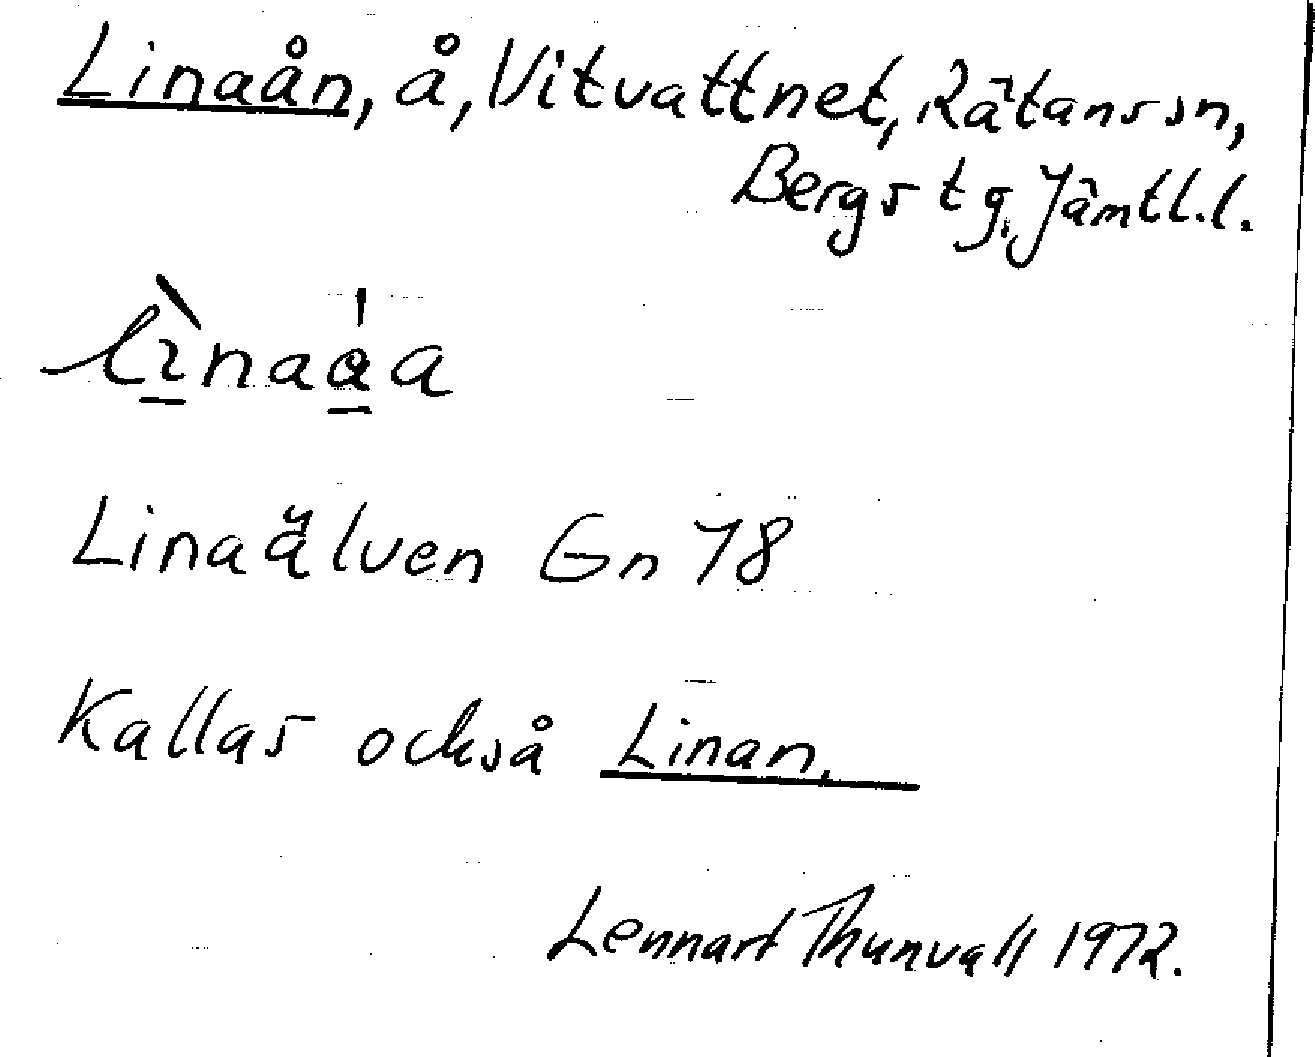 Linaån, å, Vitvattnet, Rätans sn,
Bergs tg, Jämtl.l.
Linaälven Gn 78
Kallas också Linan.
Lennart Thunvall 1972.